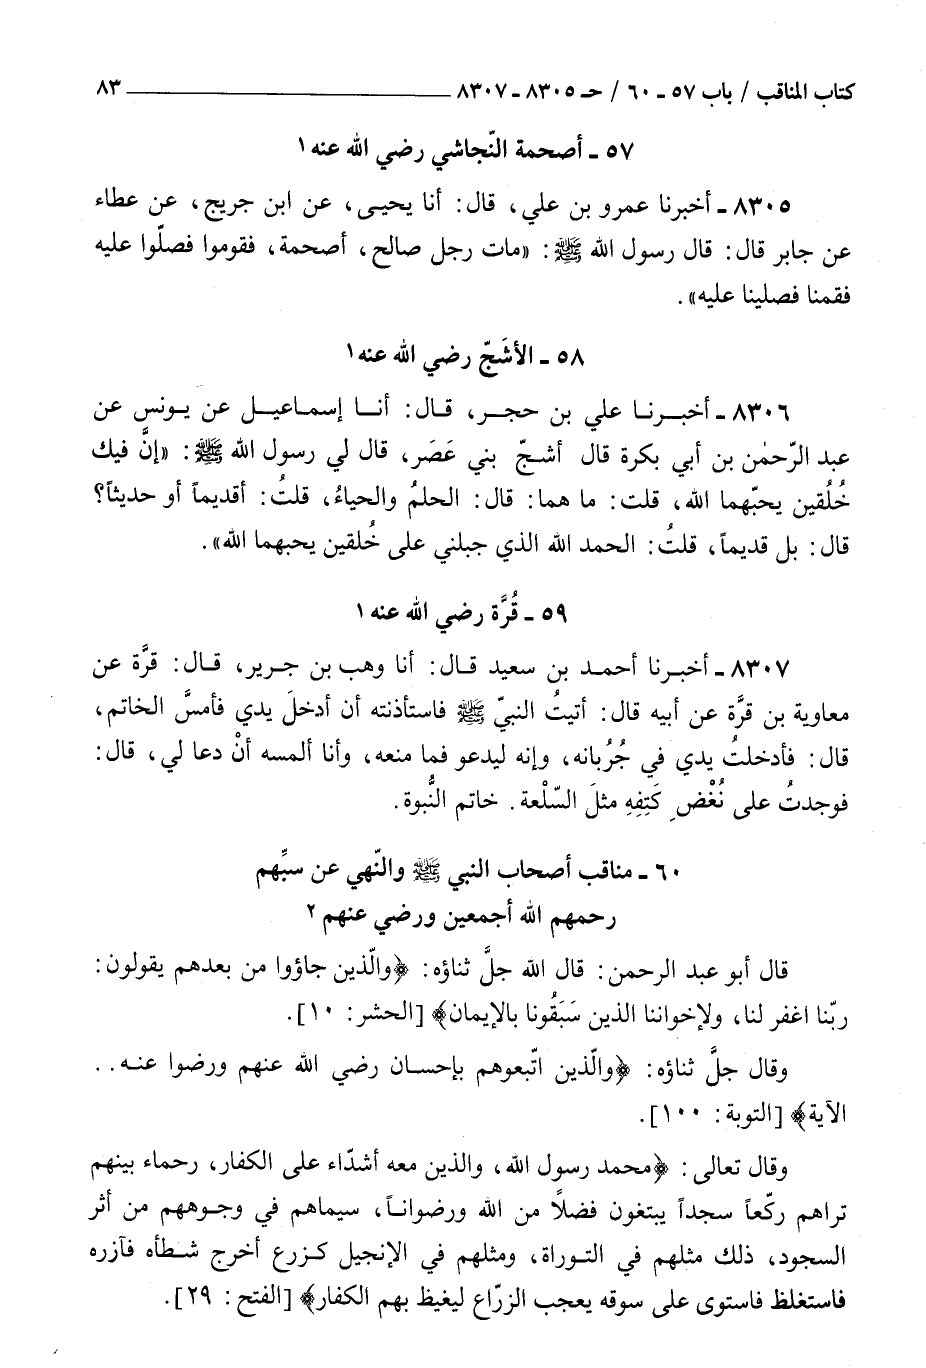 كتاب المناقب / باب ٥٧ ـ ٦٠ / حـ ٨٣٠٥ ـ ٨٣٠٧ ٨٣
٥٧ ـ أصحمة النّجاشي رضي الله عنه ١
٨٣٠٥ ـ أخبرنا عمرو بن علي، قال: أنا يحيى، عن ابن جريج، عن عطاء
عن جابر قال: قال رسول الله ﷺ: «مات رجل صالح، أصحمة، فقوموا فصلّوا عليه
فقمنا فصلينا عليه».
٥٨ ـ الأشَجّ رضي الله عنه ١
٨٣٠٦ ـ أخبرنا علي بن حجر، قال: أنا إسماعيل عن يونس عن
عبد الرّحمٰن بن أبي بكرة قال أشجّ بني عَصَر، قال لي رسول الله ﷺ: «إنَّ فيك
خُلُقين يحبّهما الله، قلت: ما هما: قال: الحلمُ والحياءُ، قلتُ: أقديماً أو حديثاً؟
قال: بل قديماً، قلتُ: الحمد الله الذي جبلني على خُلقين يحبهما الله».
٥٩ ـ قُرَّة رضي الله عنه ١
٨٣٠٧ ـ أخبرنا أحمد بن سعيد قال: أنا وهب بن جرير، قال: قرَّة عن
معاوية بن قرَّة عن أبيه قال: أتيتُ النبيّ ﷺ فاستأذنته أن أدخلَ يدي فأمسَّ الخاتم،
قال: فأدخلتُ يدي في جُرُبانه، وإنه ليدعو فما منعه، وأنا ألمسه أنْ دعا لي، قال:
فوجدتُ على نُغْضِ كَتِفِهِ مثلَ السّلْعة. خاتم النُّبوة.
٦٠ ـ مناقب أصحاب النبي ﷺ والنّهي عن سبِّهم
رحمهم الله أجمعين ورضي عنهم ٢
قال أبو عبد الرحمن: قال الله جلَّ ثناؤه: ﴿والّذين جاؤوا من بعدهم يقولون:
ربّنا اغفر لنا، ولإخواننا الذين سَبَقُونا بالإيمان﴾ [الحشر: ١٠].
وقال جلَّ ثناؤه: ﴿والّذين اتّبعوهم بإحسان رضي الله عنهم ورضوا عنه..
الآية﴾ [التوبة: ١٠٠].
وقال تعالى: ﴿محمد رسول الله، والذين معه أشدّاء على الكفار، رحماء بينهم
تراهم ركّعاً سجداً يبتغون فضلاً من الله ورضواناً، سيماهم في وجوههم من أثر
السجود، ذلك مثلهم في التوراة، ومثلهم في الإنجيل كزرع أخرج شطأه فآزره
فاستغلظ فاستوى على سوقه يعجب الزرّاع ليغيظ بهم الكفار﴾ [الفتح: ٢٩].